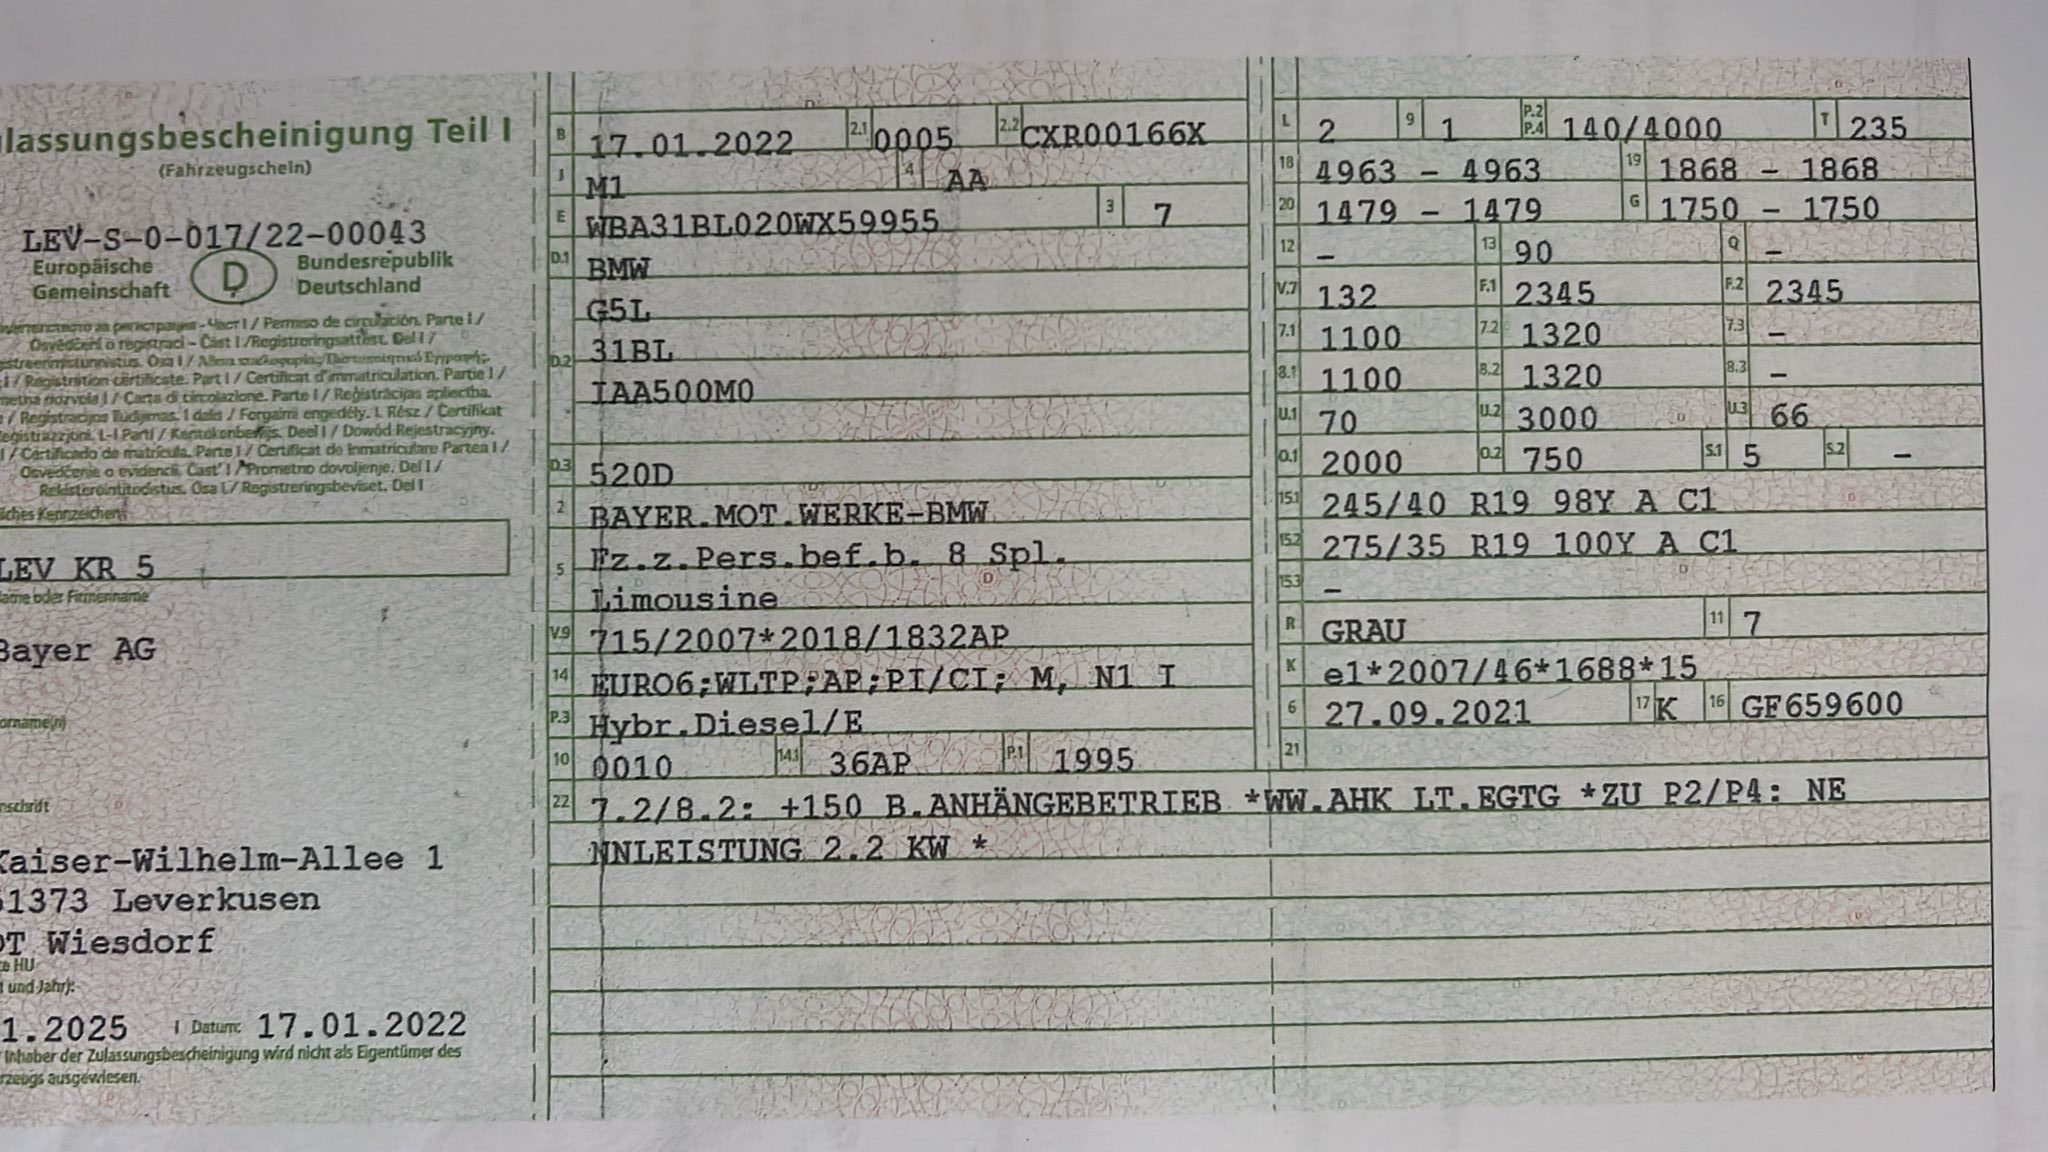 lassungsbescheinigung Teil I
(Fahrzeugschein)
LEV-S-0-017/22-00043
Europäische Gemeinschaft
D
Bundesrepublik Deutschland
Osvědčení o registraci - Část I / Registreringsattest. Del I /
/ Registration certificate. Part I / Certificat d'immatriculation. Partie I /
/ Carta di circolazione. Parte I / Reģistrācijas apliecība.
/ Certificado de matrícula. Parte I / Certificat de înmatriculare Partea I /
Osvedčenie o evidencii. Časť I / Prometno dovoljenje. Del I /
Rekisteröintitodistus. Osa I / Registreringsbeviset. Del I
Kennzeichen
LEV KR 5
ame oder Firmenname
Bayer AG
orname(n)
nschrift
Kaiser-Wilhelm-Allee 1
51373 Leverkusen
OT Wiesdorf
HU
und Jahr):
1.2025 Datum: 17.01.2022
Inhaber der Zulassungsbescheinigung wird nicht als Eigentümer des
rzeugs ausgewiesen.
B 17.01.2022 2.1 0005 2.2 CXR00166X
J M1 4 AA
E WBA31BL020WX59955 3 7
D.1 BMW
G5L
D.2 31BL
IAA500M0
D.3 520D
2 BAYER.MOT.WERKE-BMW
5 Fz.z.Pers.bef.b. 8 Spl.
Limousine
V.9 715/2007*2018/1832AP
14 EURO6;WLTP;AP;PI/CI; M, N1 I
P.3 Hybr.Diesel/E
10 0010 14.1 36AP P.1 1995
L 2 9 1 P.2 P.4 140/4000 T 235
18 4963 - 4963 19 1868 - 1868
20 1479 - 1479 G 1750 - 1750
12 - 13 90 Q -
V.7 132 F.1 2345 F.2 2345
7.1 1100 7.2 1320 7.3 -
8.1 1100 8.2 1320 8.3 -
U.1 70 U.2 3000 U.3 66
O.1 2000 O.2 750 S.1 5 S.2 -
15.1 245/40 R19 98Y A C1
15.2 275/35 R19 100Y A C1
15.3 -
R GRAU 11 7
K e1*2007/46*1688*15
6 27.09.2021 17 K 16 GF659600
21
22 7.2/8.2: +150 B.ANHÄNGEBETRIEB *WW.AHK LT.EGTG *ZU P2/P4: NE
NNLEISTUNG 2.2 KW *